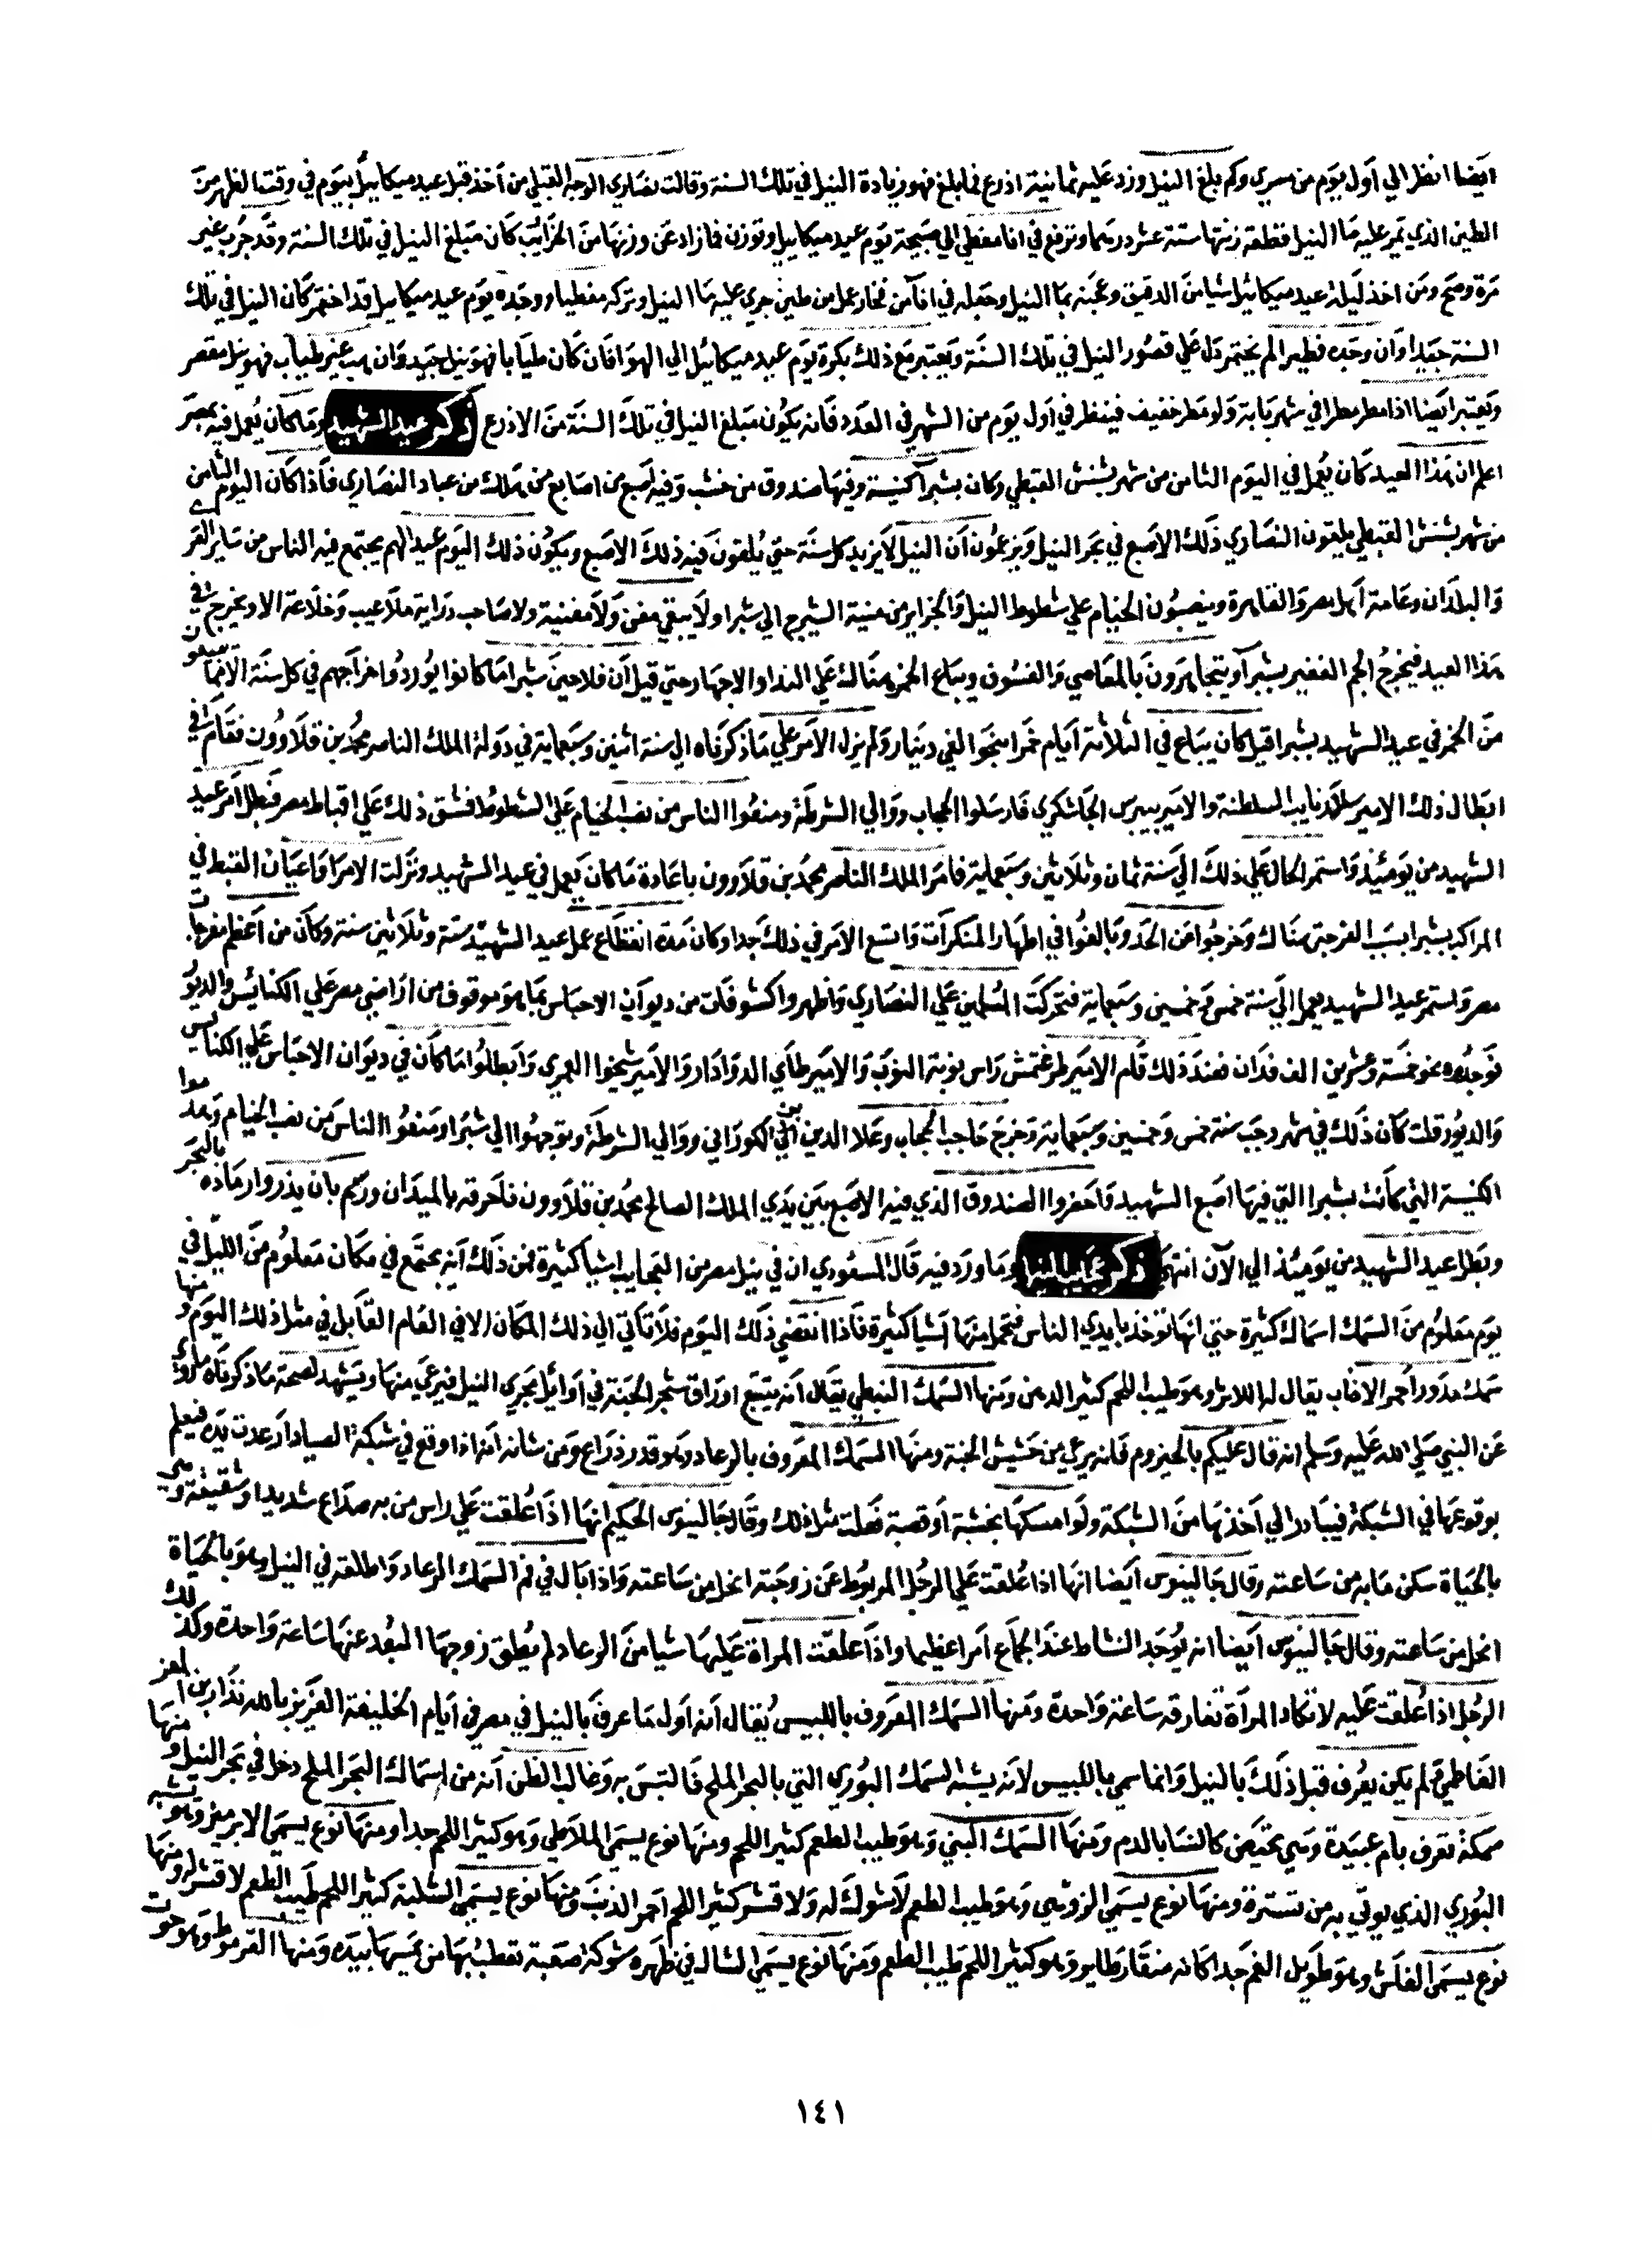 ايضا انظر الي اول يوم من مسري وكم بلغ النيل وزد عليه ثمانية اذرع فما بلغ فهو زيادة النيل في تلك السنة وقالت نصاري الوجه القبلي من اخذ قبل عيد ميكاييل بيوم في وقت الظهر من
الطين الذي يمر عليه ما النيل قطعة زنتها ستة عشر درهما وترفع في انا مغطي الي صبيحة يوم عيد ميكاييل وتوزن فما زاد عن وزنها من الخرايب كان مبلغ النيل في تلك السنة وقد جرب غير
مرة وصح ومن اخذ ليلة عيد ميكاييل شيا من الدقيق وعجنه بما النيل وجعله في انا من فخار عمل من طين جري عليه ما النيل وتركه مغطيا ووجده يوم عيد ميكاييل قد اختمر كان النيل في تلك
السنة جيدا وان وجده فطيرا لم يختمر دل علي قصور النيل في تلك السنة ويعتبر مع ذلك بكرة يوم عيد ميكاييل الي الهوا فان كان طيابا فهو نيل جيد وان هب غير طياب فهو نيل مقصر
ويعتبر ايضا اذا مطر مطرا في شهر بابة ولو مطر خفيف فينظر في اول يوم من الشهر في العدد فانه يكون مبلغ النيل في تلك السنة من الاذرع ذكر عيد الشهيد وما كان يعمل فيه بمصر
اعلم ان هذا العيد كان يعمل في اليوم الثامن من شهر بشنش القبطي وكان بشبرا كنيسة وفيها صندوق من خشب وفيه اصبع من اصابع من هلك من عباد النصاري فاذا كان اليوم الثامن
من شهر بشنش القبطي يلقون النصاري ذلك الاصبع في بحر النيل ويزعمون ان النيل لا يزيد كل سنة حتي يلقون فيه ذلك الاصبع ويكون ذلك اليوم عيد الهم يجتمع فيه الناس من ساير القري
والبلدان وعامة اهل مصر والقاهرة وينصبون الخيام علي شطوط النيل والجزاير من منية الشيرج الي شبرا ولا يبقي مغن ولا مغنية ولا صاحب دراية ملاعيب وخلاعة الا ويخرج في
هذا العيد فيخرج الجم الغفير بشبرا ويتجاهرون بالمعاصي والفسوق ويباع الخمر هناك علي الندا والاجهار حتي قيل ان فلاحين شبرا ما كانوا يوردوا خراجهم في كل سنة الا مما يبيعون
من الخمر في عيد الشهيد بشبرا قيل كان يباع في الثلاثة ايام خمرا بنحوا الفي دينار ولم يزل الامر علي ما ذكرناه الي سنة اثنين وسبعماية في دولة الملك الناصر محمد بن قلاوون فقام في
ابطال ذلك الامير سلار نايب السلطنة والامير بيبرس الجاشنكري فارسلوا الحجاب ووالي الشرطة ومنعوا الناس من نصب الخيام علي الشطوط فشق ذلك علي اقباط مصر فبطل امر عيد
الشهيد من يومئذ واستمر الحال علي ذلك الي سنة ثمان وثلاثين وسبعماية فامر الملك الناصر محمد بن قلاوون باعادة ما كان يعمل في عيد الشهيد ونزلت الامرا واعيان القبط في
المراكب بشبرا بسبب الفرجة هناك وخرجوا من الحد وبالغوا في اظهار المنكرات واتسع الامر في ذلك جدا وكان مدة انقطاع عمل عيد الشهيد ستة وثلاثين سنة وكان من اعظم مفرجات
مصر واستمر عيد الشهيد يعمل الي سنة خمس وخمسين وسبعماية فتحركت المسلمين علي النصاري واظهروا كشوفات من ديوان الاحباس بما هو موقوف من اراضي مصر علي الكنائس والديور
فوجدوه نحو خمسة وعشرين الف فدان فعند ذلك قام الامير طرغتمش راس نوبة النوب والامير طاي الدوادار والامير شيخوا العمري وابطلوا ما كان في ديوان الاحباس علي الكنايس
والديور قلت كان ذلك في شهر رجب سنة خمس وخمسين وسبعماية وخرج حاجب الحجاب وعلا الدين بن الكوراني ووالي الشرطة وتوجهوا الي شبرا ومنعوا الناس من نصب الخيام وهدموا
الكنيسة التي كانت بشبرا التي فيها اصبع الشهيد واحضروا الصندوق الذي فيه الاصبع بين يدي الملك الصالح محمد بن قلاوون فاحرقه بالميدان ورسم بان يذروا رماده بالبحر
وبطل عيد الشهيد من يومئذ الي الان انتهي ذكر عجايب النيل وما ورد فيه قال المسعودي ان في نيل مصر من العجايب اشيا كثيرة فمن ذلك انه يجتمع في مكان معلوم من النيل في
يوم معلوم من السمك اسماك كثيرة حتي انها توخذ بايدي الناس فتحمل منها اشيا كثيرة فاذا انقضي ذلك اليوم فلا تاتي الي ذلك المكان الا في العام القابل في مثل ذلك اليوم ومنها
سمك مدور احمر الاذناب يقال له وهو طيب اللحم كثير الدهن ومنها السمك النبطي يقال انه يتتبع اوراق شجر الجنة في اوائل مجري النيل فيرعي منها ويشهد لصحة ما ذكرناه ما روي
عن النبي صلي الله عليه وسلم انه قال عليكم بالحيزوم فانه يرعي من حشيش الجنة ومنها السمك المعروف بالرعاد وهو قدر ذراع ومن شانه انه اذا وقع في شبكة الصياد ارعدت يده فيعلم
بوقوعها في الشبكة فيبادر الي اخذها من الشبكة ولو امسكها بخشبة او قصبة فعلت مثل ذلك وقال جالينوس الحكيم انها اذا علقت علي راس من به صداع شديد او شقيقة وهي
بالحياة سكن ما به من ساعته وقال جالينوس ايضا انها اذا علقت علي الرجل المربوط عن زوجته انحل من ساعته واذا بال في فم السمك الرعاد واطلقه في النيل وهو بالحياة
انحل من ساعته وقال جالينوس ايضا انه يوجد النشاط عند الجماع امرا عظيما واذا علقت المراة عليها شيا من الرعاد لم يطق زوجها البعد عنها ساعة واحدة وكذلك
الرجل اذا علقت عليه لا تكاد المراة تفارقه ساعة واحدة ومنها السمك المعروف بالبيس يقال انه اول ما عرف بالنيل في مصر في ايام الخليفة العزيز بالله نذار بن المعز
الفاطمي لم يكن يعرف قبل ذلك بالنيل وانما سمي بالبيس لانه يشبه السمك البوري التي بالبحر الملح فالتبس به وغالب الظن انه من اسماك البحر الملح دخل في بحر النيل ومنها
سمكة تعرف بام عبيدة وهي تحيض كالنسا بالدم ومنها السمك البني وهو طيب الطعم كثير اللحم ومنها نوع يسمي الملاطي وهو كثير اللحم جدا ومنها نوع يسمي الابرميز وهو يشبه
البوري الذي يوتي به من تستر ومنها نوع يسمي وهو طيب الطعم لا شوك له ولا قشر كثير اللحم احمر الذنب ومنها نوع يسمي الشلبة كثير اللحم طيب الطعم لا قشر له ومنها
نوع يسمي وهو طويل الفم جدا كانه منقار طاير وهو كثير اللحم طيب الطعم ومنها نوع يسمي الشال في ظهره شوكة صعبة من يمسها بيده ومنها القرموط وهو حوت
١٤١